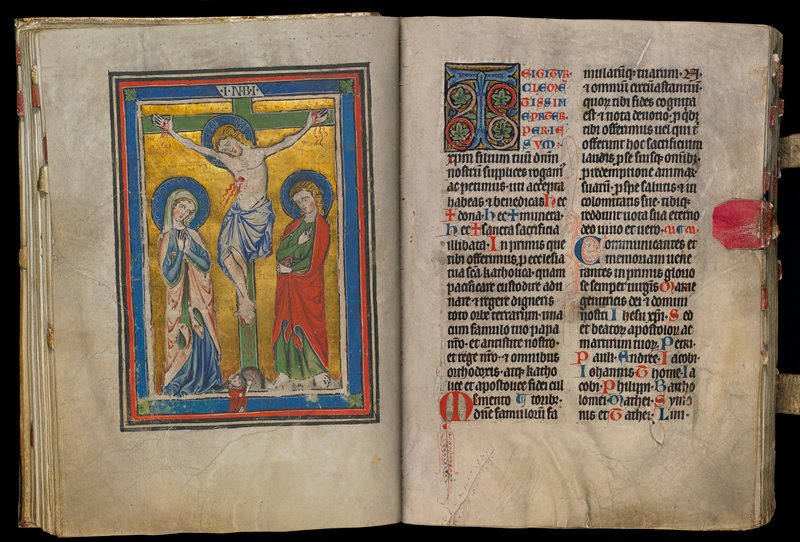 ·I·N·R·I·
TE IGITUR
CLEMĒ
TISSIM
E PATER
PER IE
SUM
xpm filium tuū dnm
nostrū supplices rogam⁹
ac petimus · uti accepta
habeas & benedicas h ec
✝ dona · h ec ✝ munera ·
h ec ✝ sancta sacrificia
illibata · In primis que
tibi offerimus p ecclesia
tua scā katholica · quam
pacificare custodire adu
nare · & regere digneris
toto orbe terrarum · una
cum famulo tuo papa
nrō · et antistite nostro ·
et rege nrō · & omnibus
orthodoxis · atq katho
lice et apostolice fidei cul
toribꝫ ·
Memento
dne famulorū fa
mularūq tuarum · N ·
& omniū circūastantiū ·
quor tibi fides cognita
est · & nota deuotio · p qbꝫ
tibi offerimus uel qui t
offerunt hoc sacrificium
laudis p se suisq onībꝫ ·
p redemptione animaꝝ
suarū · p spe salutis & in
columitatis sue · tibiq
reddunt uota sua eterno
deo uiuo et uero ·
Communicantes et
memoriam uene
rantes in primis glorio
se semper uirgīs Marie
genitricis dei & domini
nostri Ihesu xpi · S ed
et beatoꝝ apostoloꝝ ac
martirum tuoꝝ · Petri ·
Pauli · Andree · Iacobi ·
Iohannis · Thome · Ia
cobi · Philippi · Bartho
lomei · Mathei · Symo
nis et Tathei · Lini ·